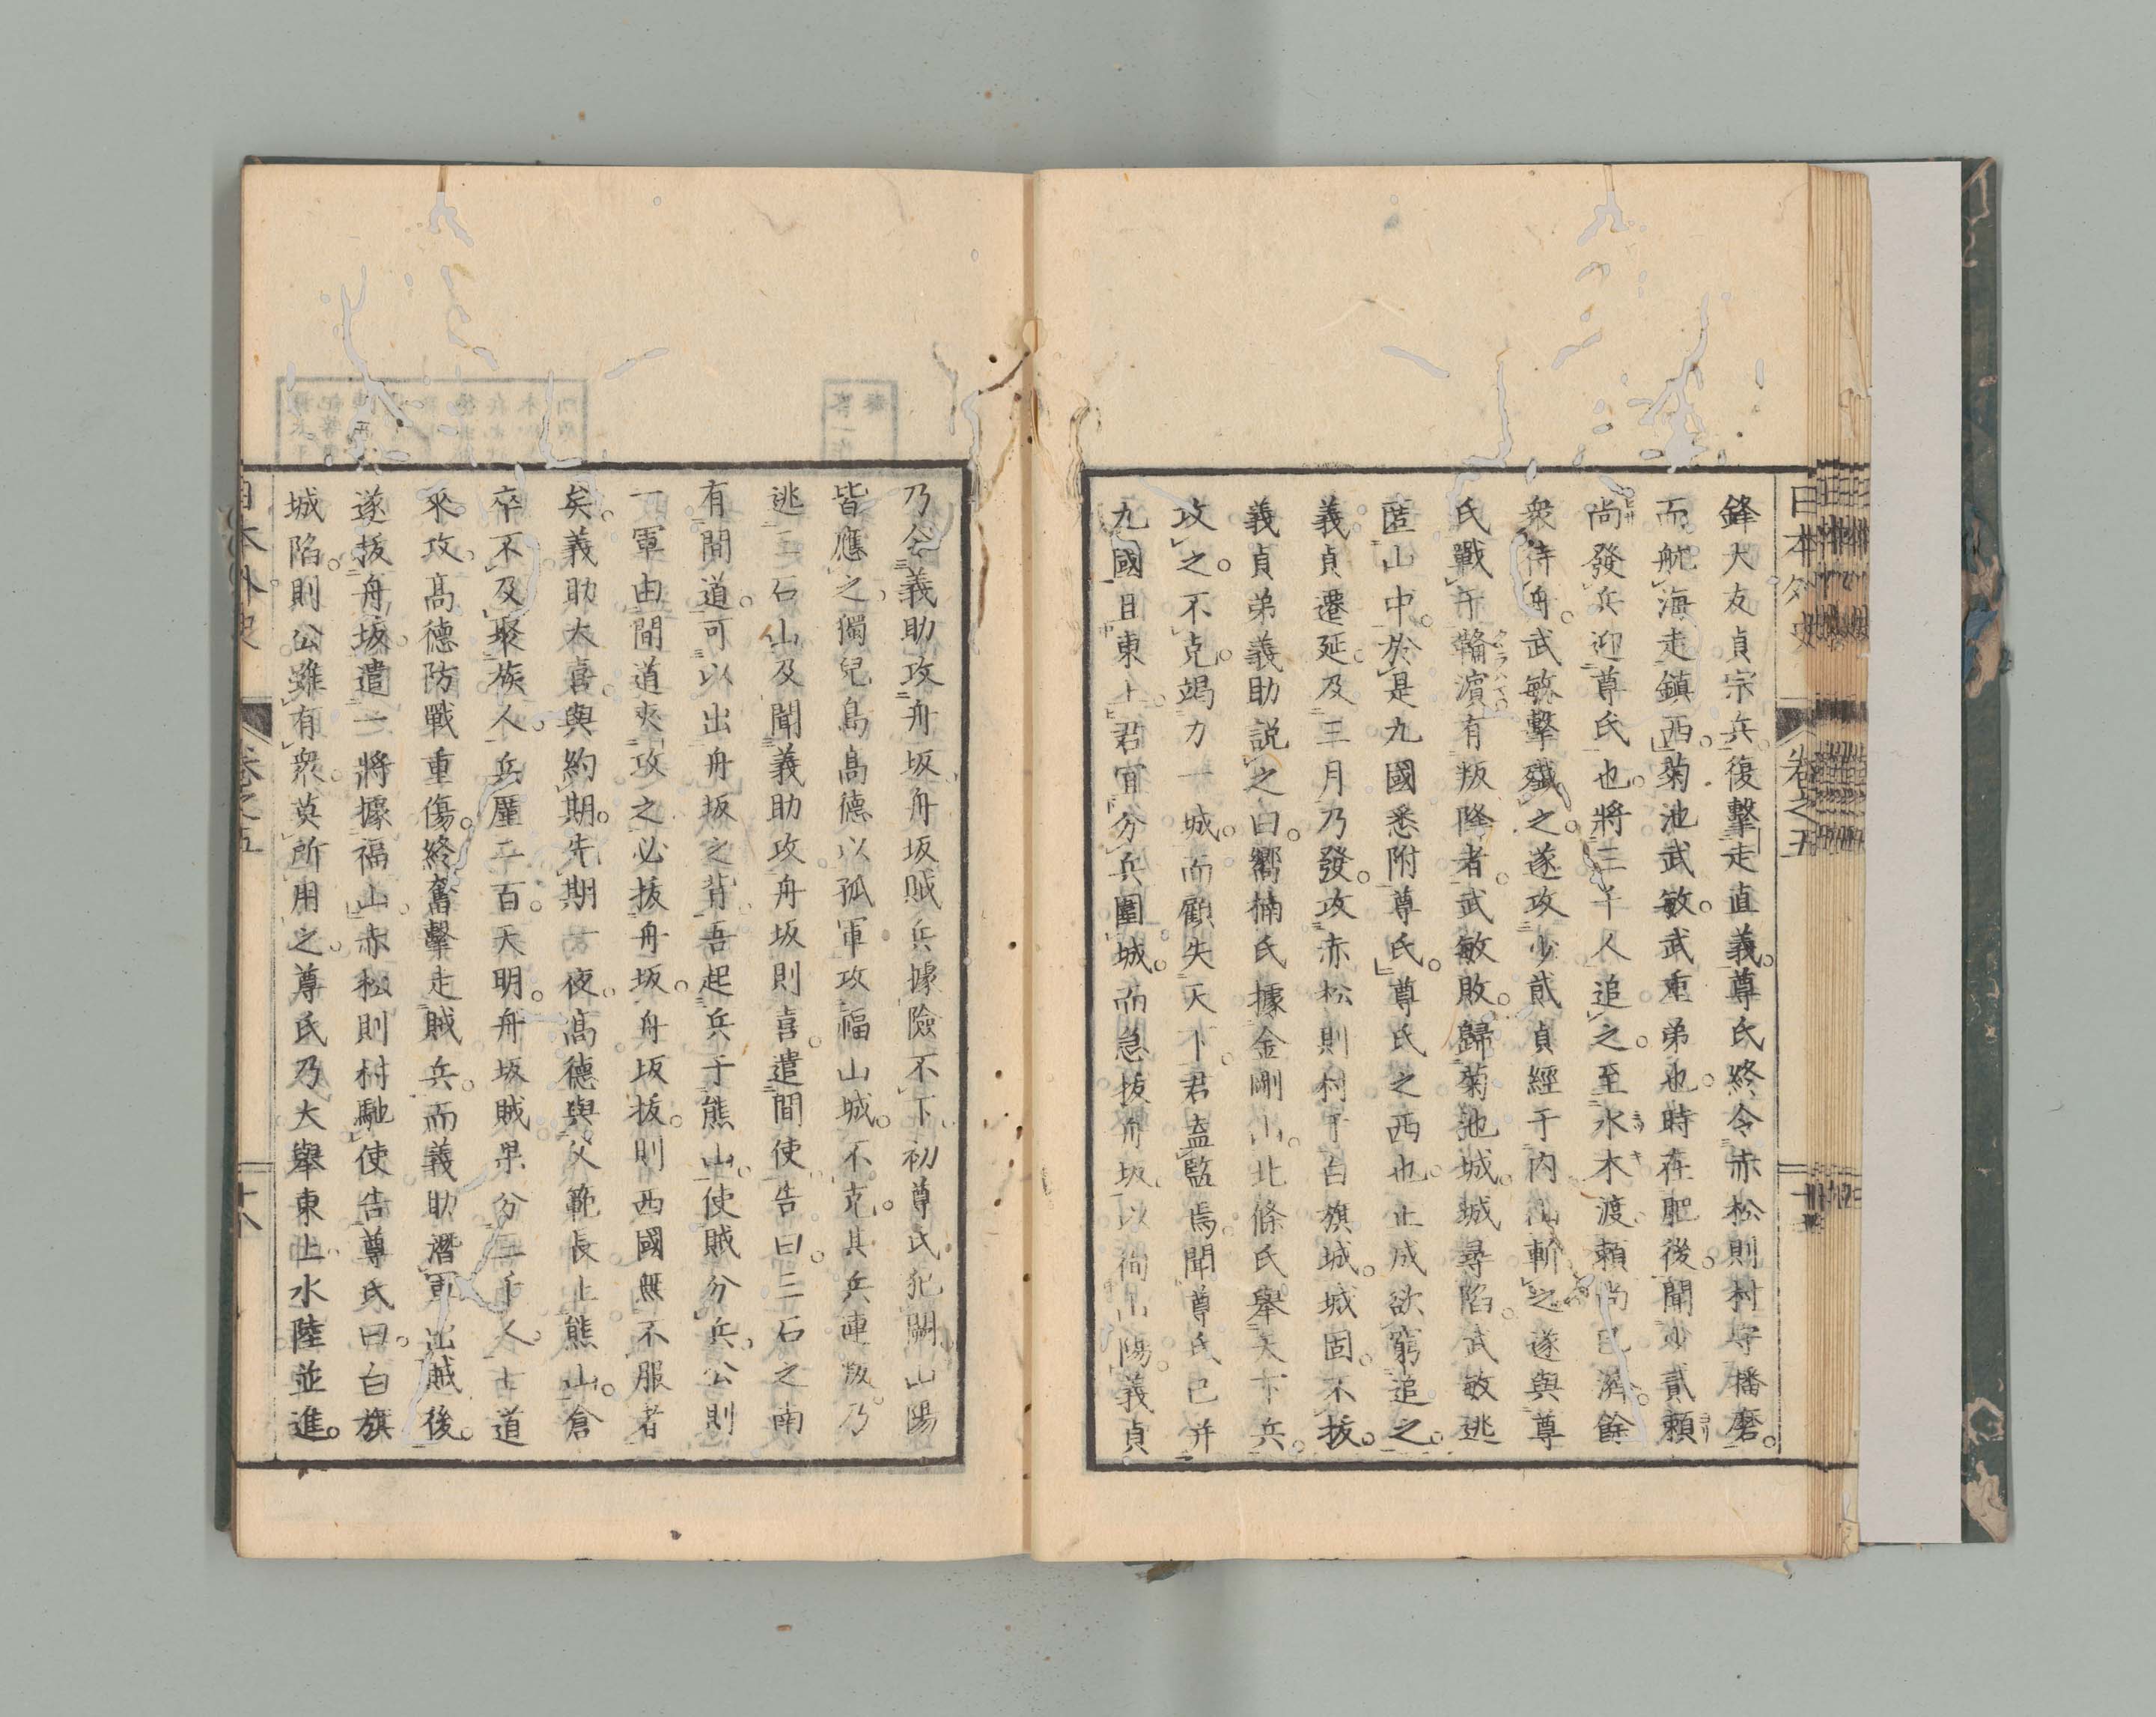 日本外史 卷之五
鋒大友貞宗兵復擊走直義。尊氏終令赤松則村守播磨。
而航海走鎮西。菊池武敏。武重弟也。時在肥後。聞少貳賴
尚發兵迎尊氏也。將三千人追之。至水木渡。賴尚已濟。餘
衆待舟。武敏擊殲之。遂攻少貳貞經于内山。斬之。遂與尊
氏戰于鞴濱。有叛降者。武敏敗。歸菊池城。城尋陷。武敏逃
匿山中。於是九國悉附尊氏。尊氏之西也。止成欲窮追之。
義貞遷延。及三月乃發。攻赤松則村于白旗城。城固。不拔。
義貞弟義助說之曰。嚮楠氏據金剛山。北條氏舉天下兵。
攻之。不克。竭力一城。而顧失天下。君盍監焉。聞尊氏已并
九國且東上。君宜分兵圍城。而急拔舟坂。以徇山陽。義貞
乃令義助攻舟坂。舟坂賊兵據險不下。初尊氏犯闕。山陽
皆應之。獨兒島高德以孤軍攻福山城。不克。其兵連叛。乃
逃三石山。及聞義助攻舟坂則喜。遣間使告曰。三石之南
有間道。可以出舟坂之背。吾起兵于熊山。使賊分兵。公則
一軍由間道夾攻之。必拔舟坂。舟坂拔。則西國無不服者
矣。義助大喜。與約期。先期一夜。高德與父範長上熊山。倉
卒不及聚族人。兵廑二百。天明。舟坂賊果分三千人。古道
來攻。高德防戰重傷。終奮擊走賊兵。而義助潛軍出賊後。
遂拔舟坂。遣二將據福山。赤松則村馳使告尊氏曰。白旗
城陷。則公雖有衆。莫所用之。尊氏乃大舉東上。水陸並進。
日本外史 卷之五 十八